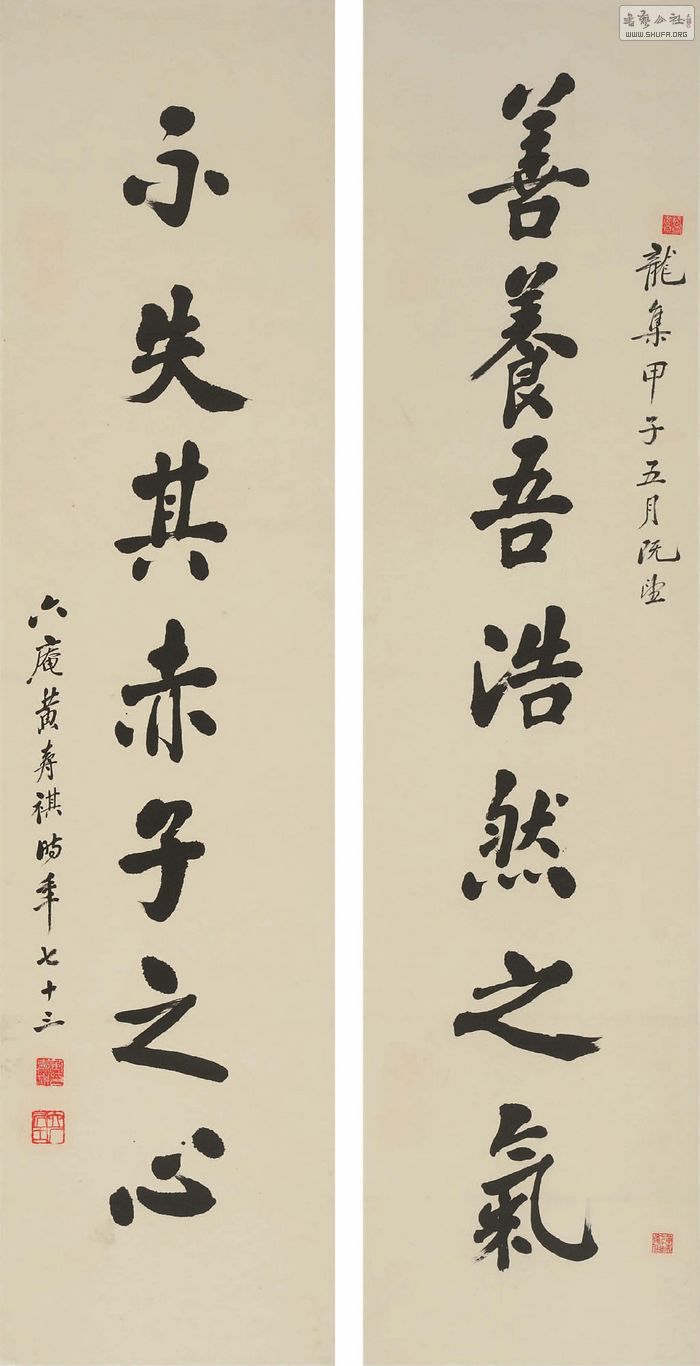 龍集甲子五月既望
善養吾浩然之氣
不失其赤子之心
六庵黄寿祺時年七十三
WWW.SHUFA.ORG